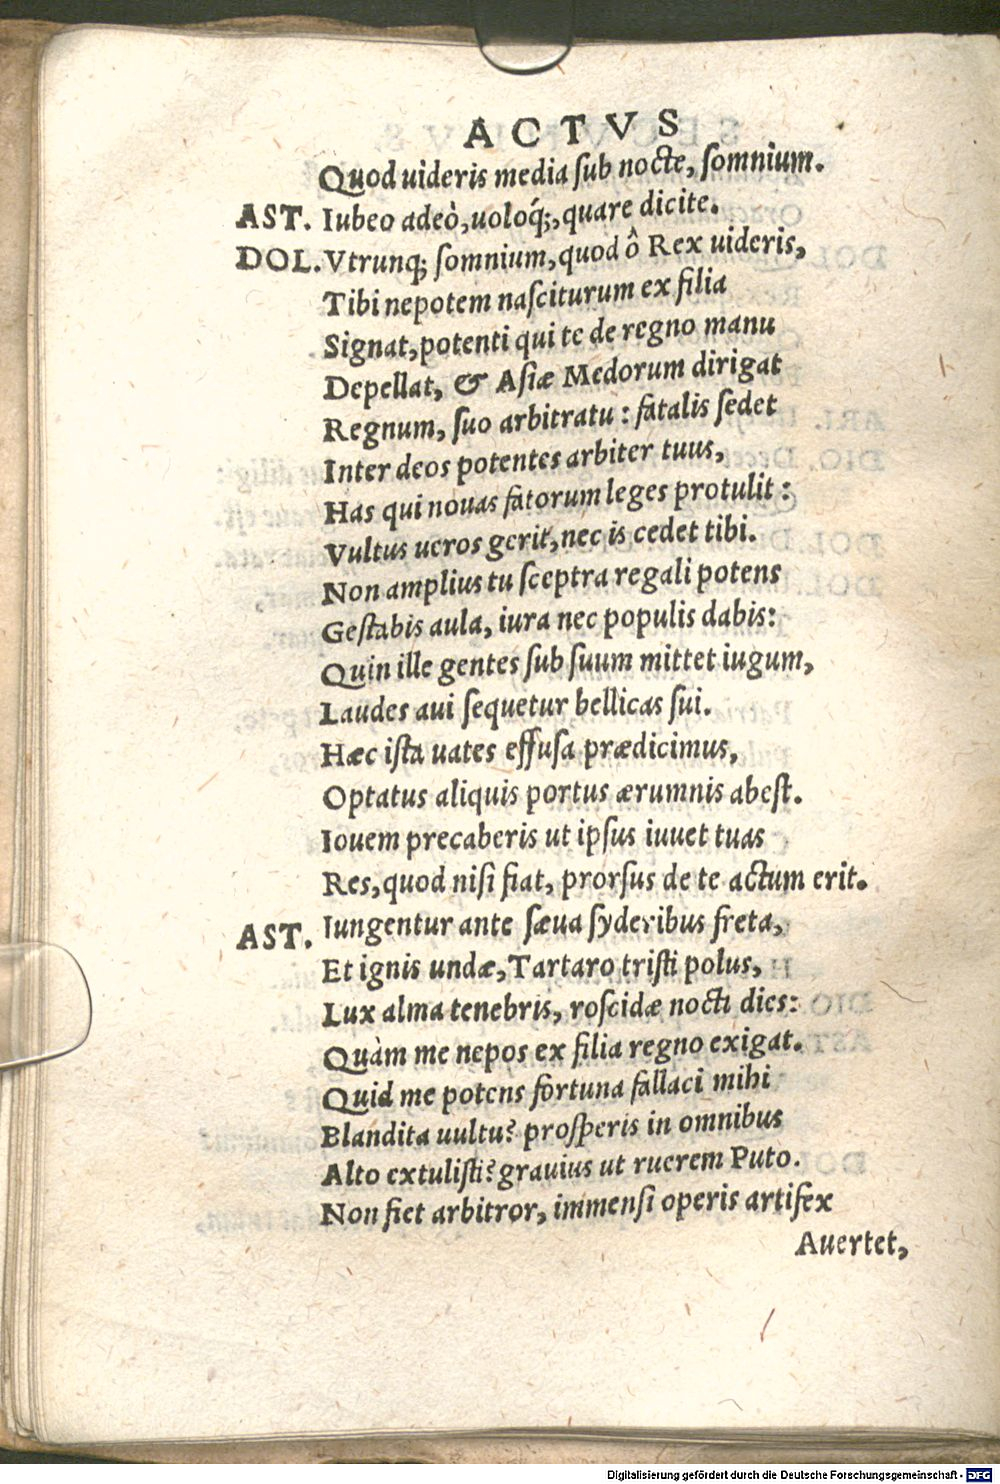 ACTVS
Quod uideris media sub nocte, somnium.
AST. Iubeo adeò, uoloq́;, quare dicite.
DOL. Vtrunq; somnium, quod ô Rex uideris,
Tibi nepotem nasciturum ex filia
Signat, potenti qui te de regno manu
Depellat, & Asiæ Medorum dirigat
Regnum, suo arbitratu : fatalis sedet
Inter deos potentes arbiter tuus,
Has qui nouas fatorum leges protulit :
Vultus ueros gerit, nec is cedet tibi.
Non amplius tu sceptra regali potens
Gestabis aula, iura nec populis dabis:
Quin ille gentes sub suum mittet iugum,
Laudes aui sequetur bellicas sui.
Hæc ista uates effusa prædicimus,
Optatus aliquis portus ærumnis abest.
Iouem precaberis ut ipsus iuuet tuas
Res, quod nisi fiat, prorsus de te actum erit.
AST. Iungentur ante sæua syderibus freta,
Et ignis undæ, Tartaro tristi polus,
Lux alma tenebris, roscidæ nocti dies:
Quàm me nepos ex filia regno exigat.
Quid me potens fortuna fallaci mihi
Blandita uultu? prosperis in omnibus
Alto extulisti? grauius ut ruerem Puto.
Non fiet arbitror, immensi operis artifex
Auertet,
Digitalisierung gefördert durch die Deutsche Forschungsgemeinschaft - DFG